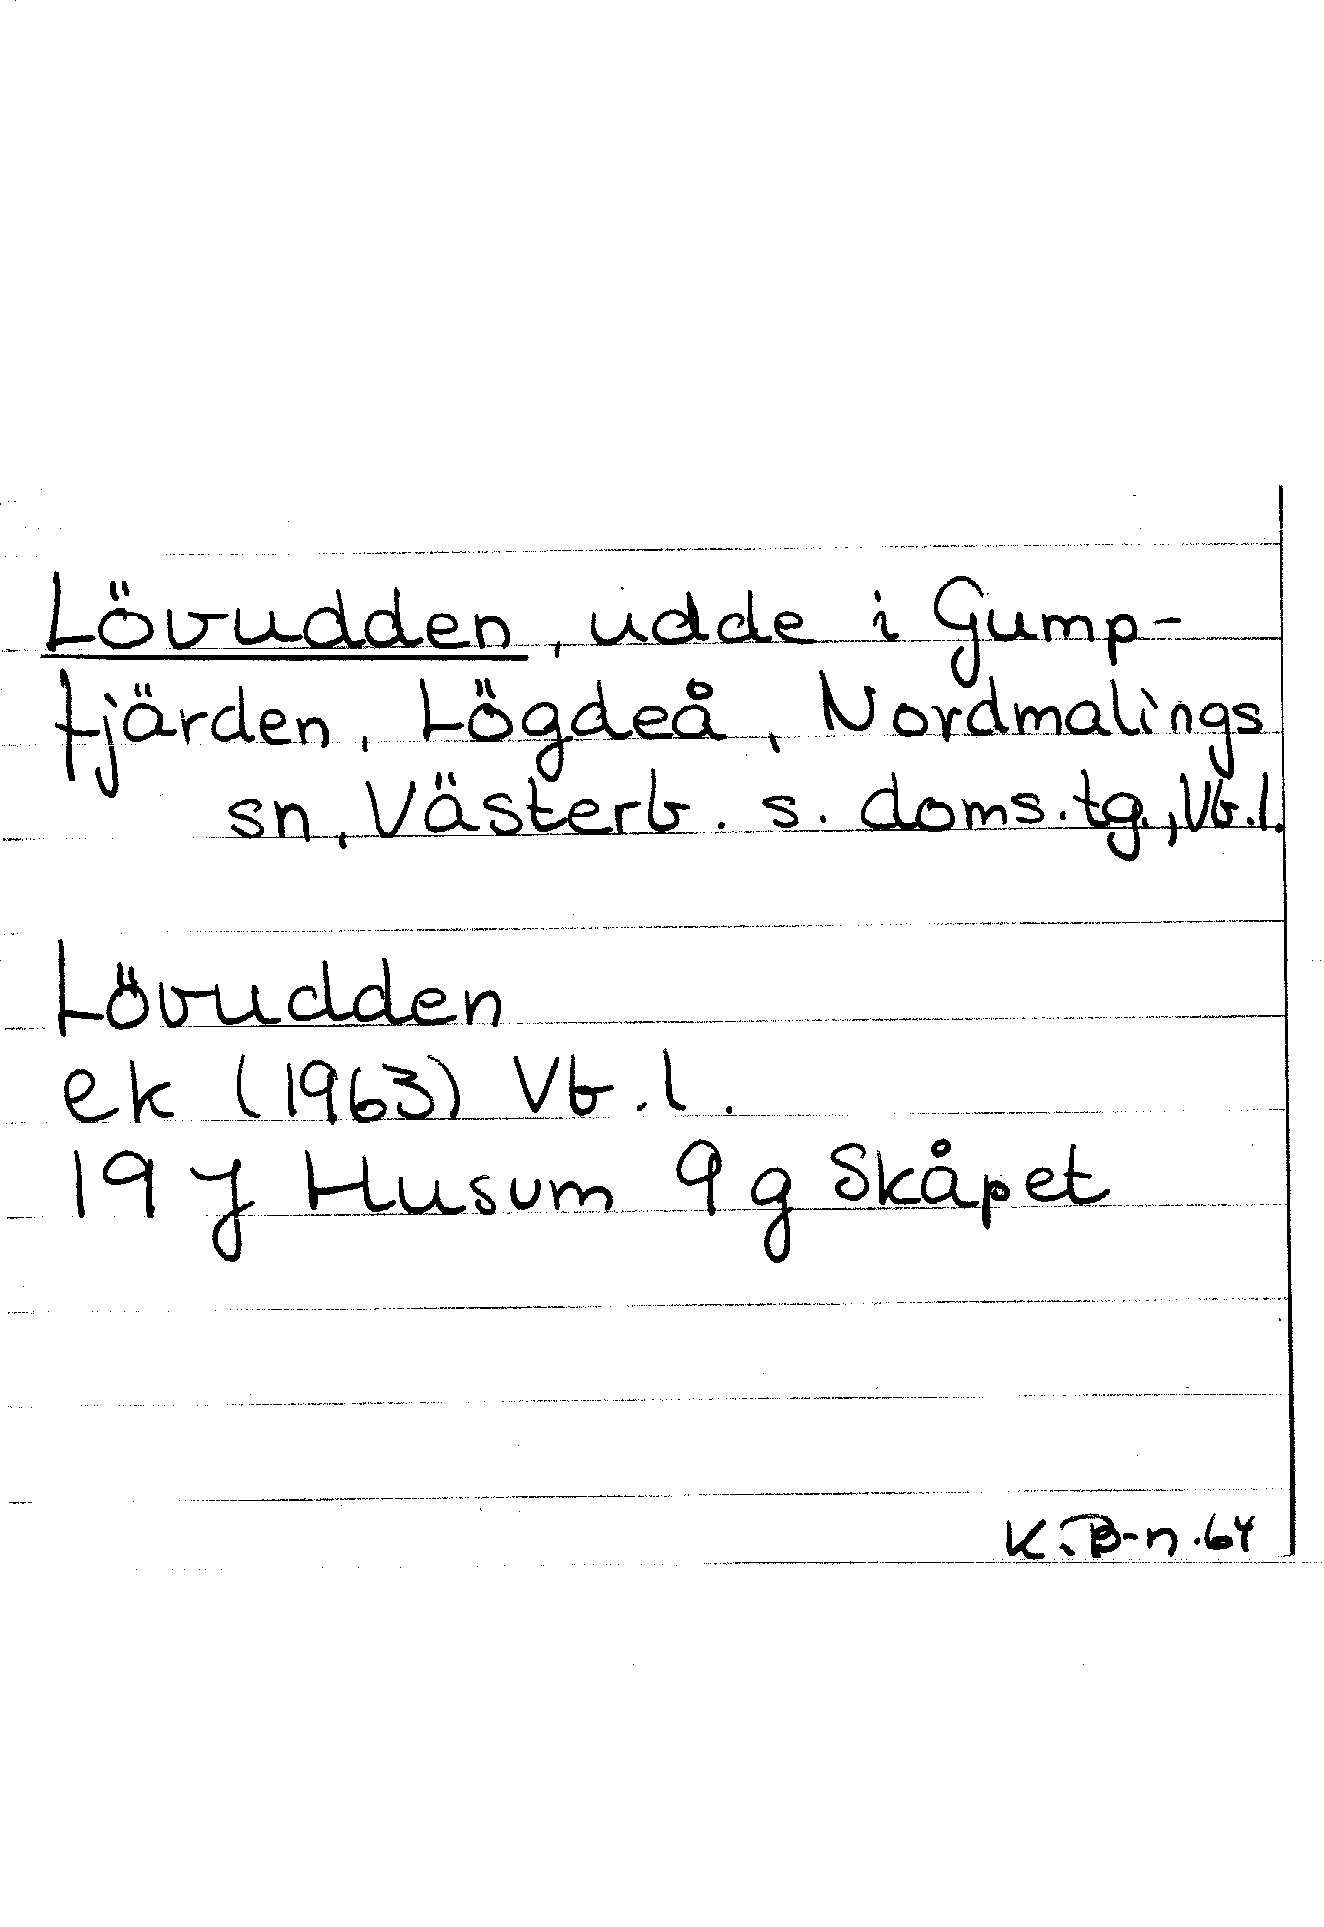 Lövudden, udde i Gump-
fjärden, Lögdeå, Nordmalings
sn, Västerb. s. doms.tg., Vb.l.
Lövudden
ek (1963) Vb.l.
19 J Husum 9 g Skåpet
K.B-n.64